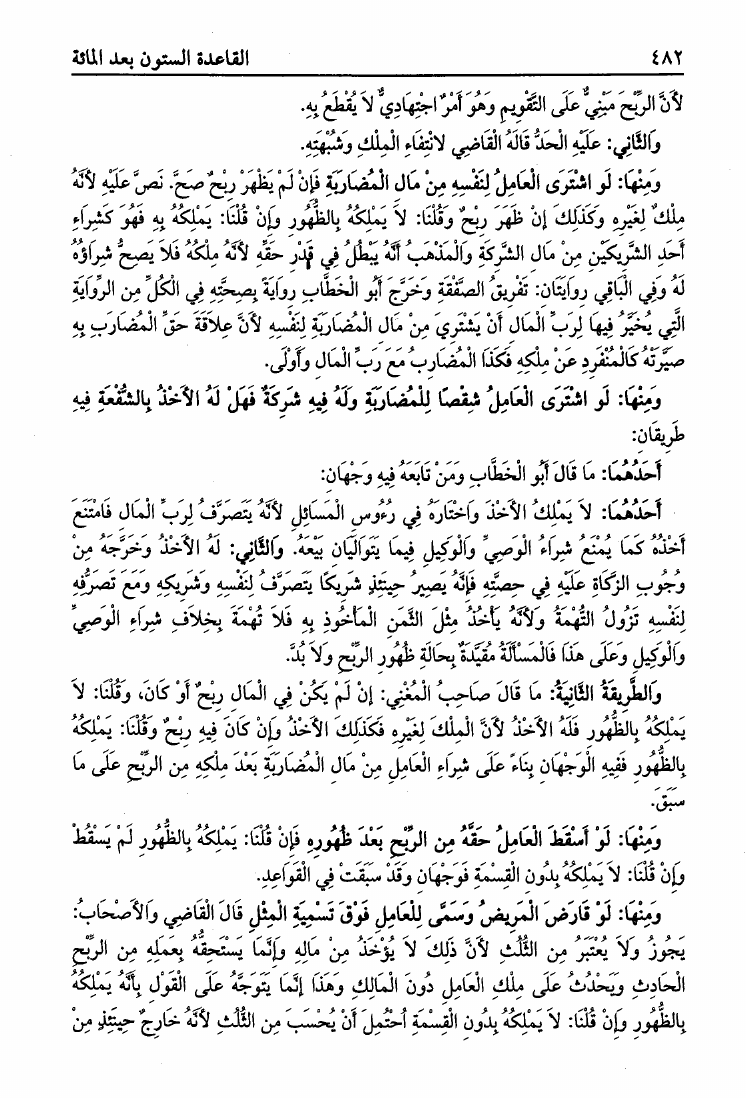 ٤٨٢ القاعدة الستون بعد المائة
لأَنَّ الرِّبْحَ مَبْنِيٌّ عَلَى التَّقْوِيمِ وَهُوَ أَمْرٌ اجْتِهَادِيٌّ لاَ يُقْطَعُ بِهِ.
وَالثَّانِي: عَلَيْهِ الْحَدُّ قَالَهُ الْقَاضِي لانْتِفَاءِ الْمِلْكِ وَشُبْهَتِهِ.
وَمِنْهَا: لَو اشْتَرَى الْعَامِلُ لِنَفْسِهِ مِنْ مَالِ الْمُضَارَبَةِ فَإِنْ لَمْ يَظْهَرْ رِبْحٌ صَحَّ. نَصَّ عَلَيْهِ لأَنَّهُ
مِلْكٌ لِغَيْرِهِ وَكَذَلِكَ إِنْ ظَهَرَ رِبْحٌ وَقُلْنَا: لاَ يَمْلِكُهُ بِالظُّهُورِ وَإِنْ قُلْنَا: يَمْلِكُهُ بِهِ فَهُوَ كَشِرَاءِ
أَحَدِ الشَّرِيكَيْنِ مِنْ مَالِ الشَّرِكَةِ وَالْمَذْهَبُ أَنَّهُ يَبْطُلُ فِي قَدْرِ حَقِّهِ لأَنَّهُ مِلْكُهُ فَلاَ يَصِحُّ شِرَاؤُهُ
لَهُ وَفِي الْبَاقِي رِوَايَتَانِ: تَفْرِيقُ الصَّفْقَةِ وَخَرَّجَ أَبُو الْخَطَّابِ رِوَايَةً بِصِحَّتِهِ فِي الْكُلِّ مِن الرِّوَايَةِ
الَّتِي يُخَيَّرُ فِيهَا لِرَبِّ الْمَالِ أَنْ يَشْتَرِيَ مِنْ مَالِ الْمُضَارَبَةِ لِنَفْسِهِ لأَنَّ عِلاَقَةَ حَقِّ الْمُضَارَبِ بِهِ
صَيَّرَتْهُ كَالْمُنْفَرِدِ عَنْ مِلْكِهِ فَكَذَا الْمُضَارِبُ مَعَ رَبِّ الْمَالِ وَأَوْلَى.
وَمِنْهَا: لَو اشْتَرَى الْعَامِلُ شِقْصًا لِلْمُضَارَبَةِ وَلَهُ فِيهِ شَرِكَةٌ فَهَلْ لَهُ الأَخْذُ بِالشُّفْعَةِ فِيهِ
طَرِيقَانِ:
أَحَدُهُمَا: مَا قَالَ أَبُو الْخَطَّابِ وَمَنْ تَابَعَهُ فِيهِ وَجْهَانِ:
أَحَدُهُمَا: لاَ يَمْلِكُ الأَخْذَ وَاخْتَارَهُ فِي رُءُوسِ الْمَسَائِلِ لأَنَّهُ يَتَصَرَّفُ لِرَبِّ الْمَالِ فَامْتَنَعَ
أَخْذُهُ كَمَا يُمْنَعُ شِرَاءُ الْوَصِيِّ وَالْوَكِيلِ فِيمَا يَتَوَالَيَانِ بَيْعَهُ. وَالثَّانِي: لَهُ الأَخْذُ وَخَرَّجَهُ مِنْ
وُجُوبِ الزَّكَاةِ عَلَيْهِ فِي حِصَّتِهِ فَإِنَّهُ يَصِيرُ حِينَئِذٍ شَرِيكًا يَتَصَرَّفُ لِنَفْسِهِ وَشَرِيكِهِ وَمَعَ تَصَرُّفِهِ
لِنَفْسِهِ تَزُولُ التُّهْمَةُ وَلأَنَّهُ يَأْخُذُ مِثْلَ الثَّمَنِ الْمَأْخُوذِ بِهِ فَلاَ تُهْمَةَ بِخِلاَفِ شِرَاءِ الْوَصِيِّ
وَالْوَكِيلِ وَعَلَى هَذَا فَالْمَسْأَلَةُ مُقَيَّدَةٌ بِحَالَةِ ظُهُورِ الرِّبْحِ وَلاَ بُدَّ.
وَالطَّرِيقَةُ الثَّانِيَةُ: مَا قَالَ صَاحِبُ الْمُغْنِي: إِنْ لَمْ يَكُنْ فِي الْمَالِ رِبْحٌ أَوْ كَانَ، وَقُلْنَا: لاَ
يَمْلِكُهُ بِالظُّهُورِ فَلَهُ الأَخْذُ لأَنَّ الْمِلْكَ لِغَيْرِهِ فَكَذَلِكَ الأَخْذُ وَإِنْ كَانَ فِيهِ رِبْحٌ وَقُلْنَا: يَمْلِكُهُ
بِالظُّهُورِ فَفِيهِ الْوَجْهَانِ بِنَاءً عَلَى شِرَاءِ الْعَامِلِ مِنْ مَالِ الْمُضَارَبَةِ بَعْدَ مِلْكِهِ مِن الرِّبْحِ عَلَى مَا
سَبَقَ.
وَمِنْهَا: لَوْ أَسْقَطَ الْعَامِلُ حَقَّهُ مِن الرِّبْحِ بَعْدَ ظُهُورِهِ فَإِنْ قُلْنَا: يَمْلِكُهُ بِالظُّهُورِ لَمْ يَسْقُطْ
وَإِنْ قُلْنَا: لاَ يَمْلِكُهُ بِدُونِ الْقِسْمَةِ فَوَجْهَانِ وَقَدْ سَبَقَتْ فِي الْقَوَاعِدِ.
وَمِنْهَا: لَوْ قَارَضَ الْمَرِيضُ وَسَمَّى لِلْعَامِلِ فَوْقَ تَسْمِيَةِ الْمِثْلِ قَالَ الْقَاضِي وَالأَصْحَابُ:
يَجُوزُ وَلاَ يُعْتَبَرُ مِن الثُّلُثِ لأَنَّ ذَلِكَ لاَ يُؤْخَذُ مِنْ مَالِهِ وَإِنَّمَا يَسْتَحِقُّهُ بِعَمَلِهِ مِن الرِّبْحِ
الْحَادِثِ وَيَحْدُثُ عَلَى مِلْكِ الْعَامِلِ دُونَ الْمَالِكِ وَهَذَا إِنَّمَا يَتَوَجَّهُ عَلَى الْقَوْلِ بِأَنَّهُ يَمْلِكُهُ
بِالظُّهُورِ وَإِنْ قُلْنَا: لاَ يَمْلِكُهُ بِدُونِ الْقِسْمَةِ احْتُمِلَ أَنْ يُحْسَبَ مِن الثُّلُثِ لأَنَّهُ خَارِجٌ حِينَئِذٍ مِنْ